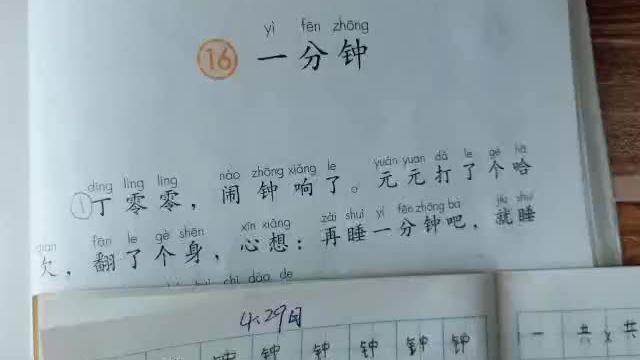 yì fēn zhōng
16 一分钟
dīng líng líng nào zhōng xiǎng le yuán yuan dǎ le gè hā
①丁零零，闹钟响了。元元打了个哈
qian fān le gè shēn xīn xiǎng zài shuì yì fēn zhōng ba jiù shuì
欠，翻了个身，心想：再睡一分钟吧，就睡
chí dào de
4.29日
钟 钟 钟 钟 钟 钟 一 共 x 共